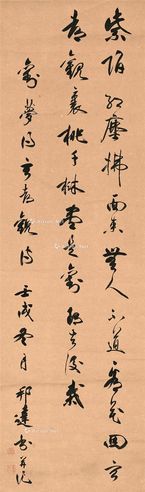 紫陌紅塵拂面來無人不道看花回玄
都觀裏桃千株盡是劉郎去後栽
劉夢得玄都觀詩 壬戌冬月 達書並記